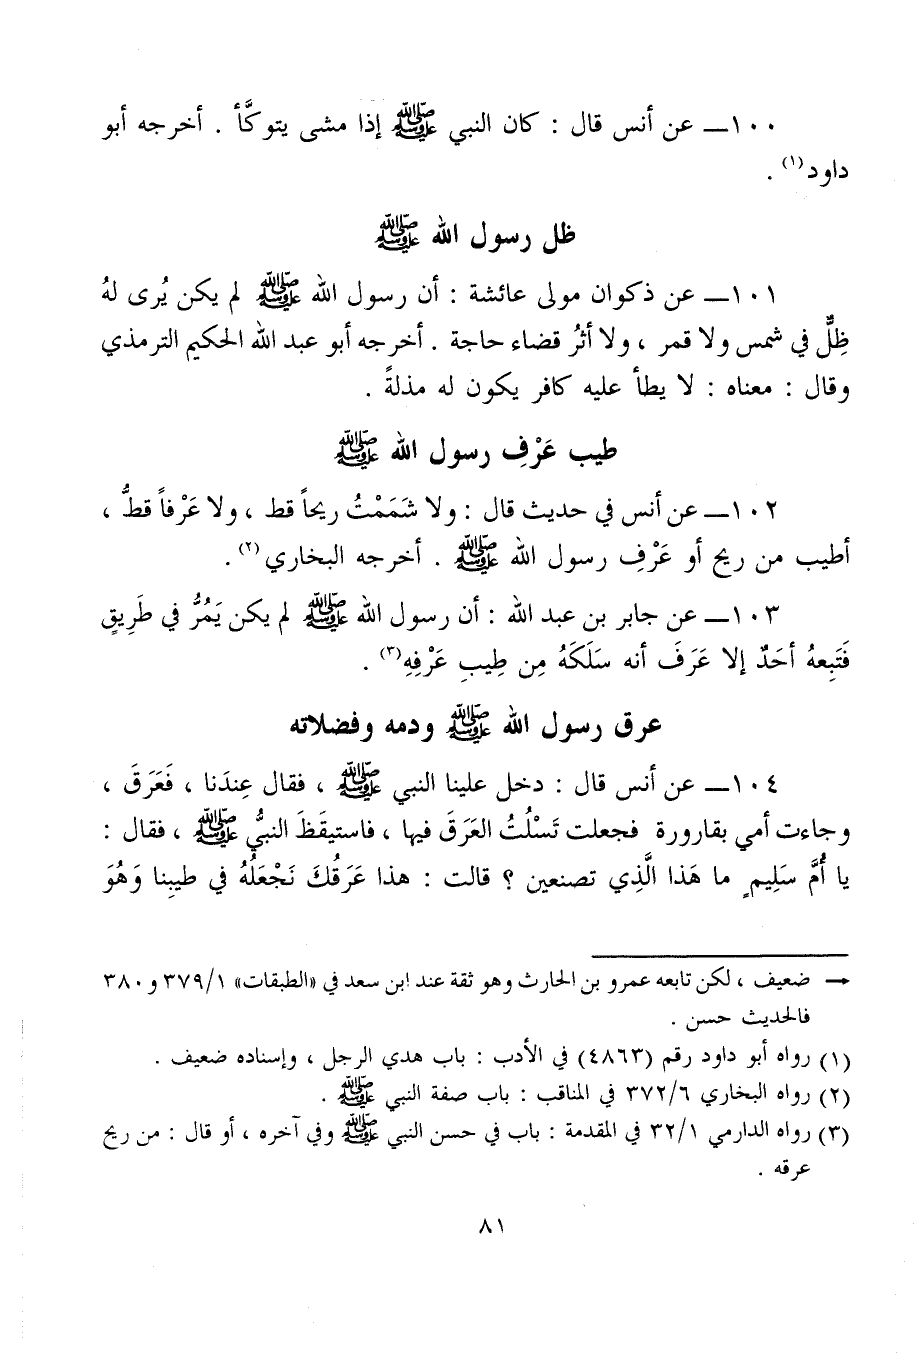 ١٠٠ــ عن أنس قال : كان النبي ﷺ إذا مشى يتوكَّأ . أخرجه أبو
داود(١) .
ظل رسول الله ﷺ
١٠١ــ عن ذكوان مولى عائشة : أن رسول الله ﷺ لم يكن يُرى لهُ
ظِلٌّ في شمس ولا قمر ، ولا أثرُ قضاء حاجة . أخرجه أبو عبد الله الحكيم الترمذي
وقال : معناه : لا يطأ عليه كافر يكون له مذلةً .
طيب عَرْفِ رسول الله ﷺ
١٠٢ــ عن أنس في حديث قال : ولا شَمَمْتُ ريحاً قط ، ولا عَرْفاً قطُّ ،
أطيب من ريح أو عَرْفِ رسول الله ﷺ . أخرجه البخاري(٢) .
١٠٣ــ عن جابر بن عبد الله : أن رسول الله ﷺ لم يكن يَمُرُّ في طَرِيقٍ
فَتَبِعهُ أحَدٌ إلا عَرَفَ أنه سَلَكَهُ مِن طِيبِ عَرْفِهِ(٣) .
عرق رسول الله ﷺ ودمه وفضلاته
١٠٤ــ عن أنس قال : دخل علينا النبي ﷺ ، فقال عِندَنا ، فَعَرَقَ ،
وجاءت أمي بقارورة فجعلت تَسْلُتُ العَرَقَ فيها ، فاستيقَظَ النبيُّ ﷺ ، فقال :
يا أُمَّ سَلِيمٍ ما هَذا الَّذِي تصنعين ؟ قالت : هذا عَرَقُكَ نَجْعَلُهُ في طيبِنا وَهُوَ
→ ضعيف ، لكن تابعه عمرو بن الحارث وهو ثقة عند ابن سعد في «الطبقات» ٣٧٩/١ و ٣٨٠
فالحديث حسن .
(١) رواه أبو داود رقم (٤٨٦٣) في الأدب : باب هدي الرجل ، وإسناده ضعيف .
(٢) رواه البخاري ٣٧٢/٦ في المناقب : باب صفة النبي ﷺ .
(٣) رواه الدارمي ٣٢/١ في المقدمة : باب في حسن النبي ﷺ وفي آخره ، أو قال : من ريح
عرقه .
٨١